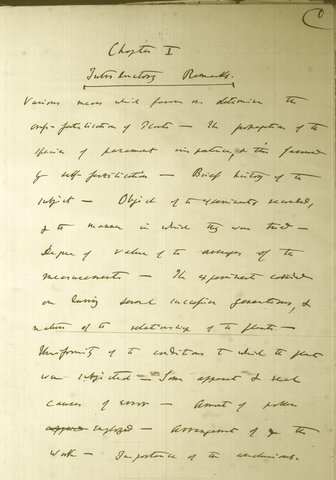 Chapter I
Introductory Remarks.
Various means which favour or determine the
cross-fertilisation of Plants — The propagation of the
species of paramount importance, & this favoured
by self-fertilisation — Brief history of the
subject — Object of the experiments recorded,
& the manner in which they were tried —
Degree of value of the averages of the
measurements — The experiments carried
on during several successive generations, &
nature of the relationship of the plants —
Uniformity of the conditions to which the plants
were subjected — Some apparent & real
causes of error — Amount of pollen
employed — Arrangement of the
work — Importance of the conclusions.